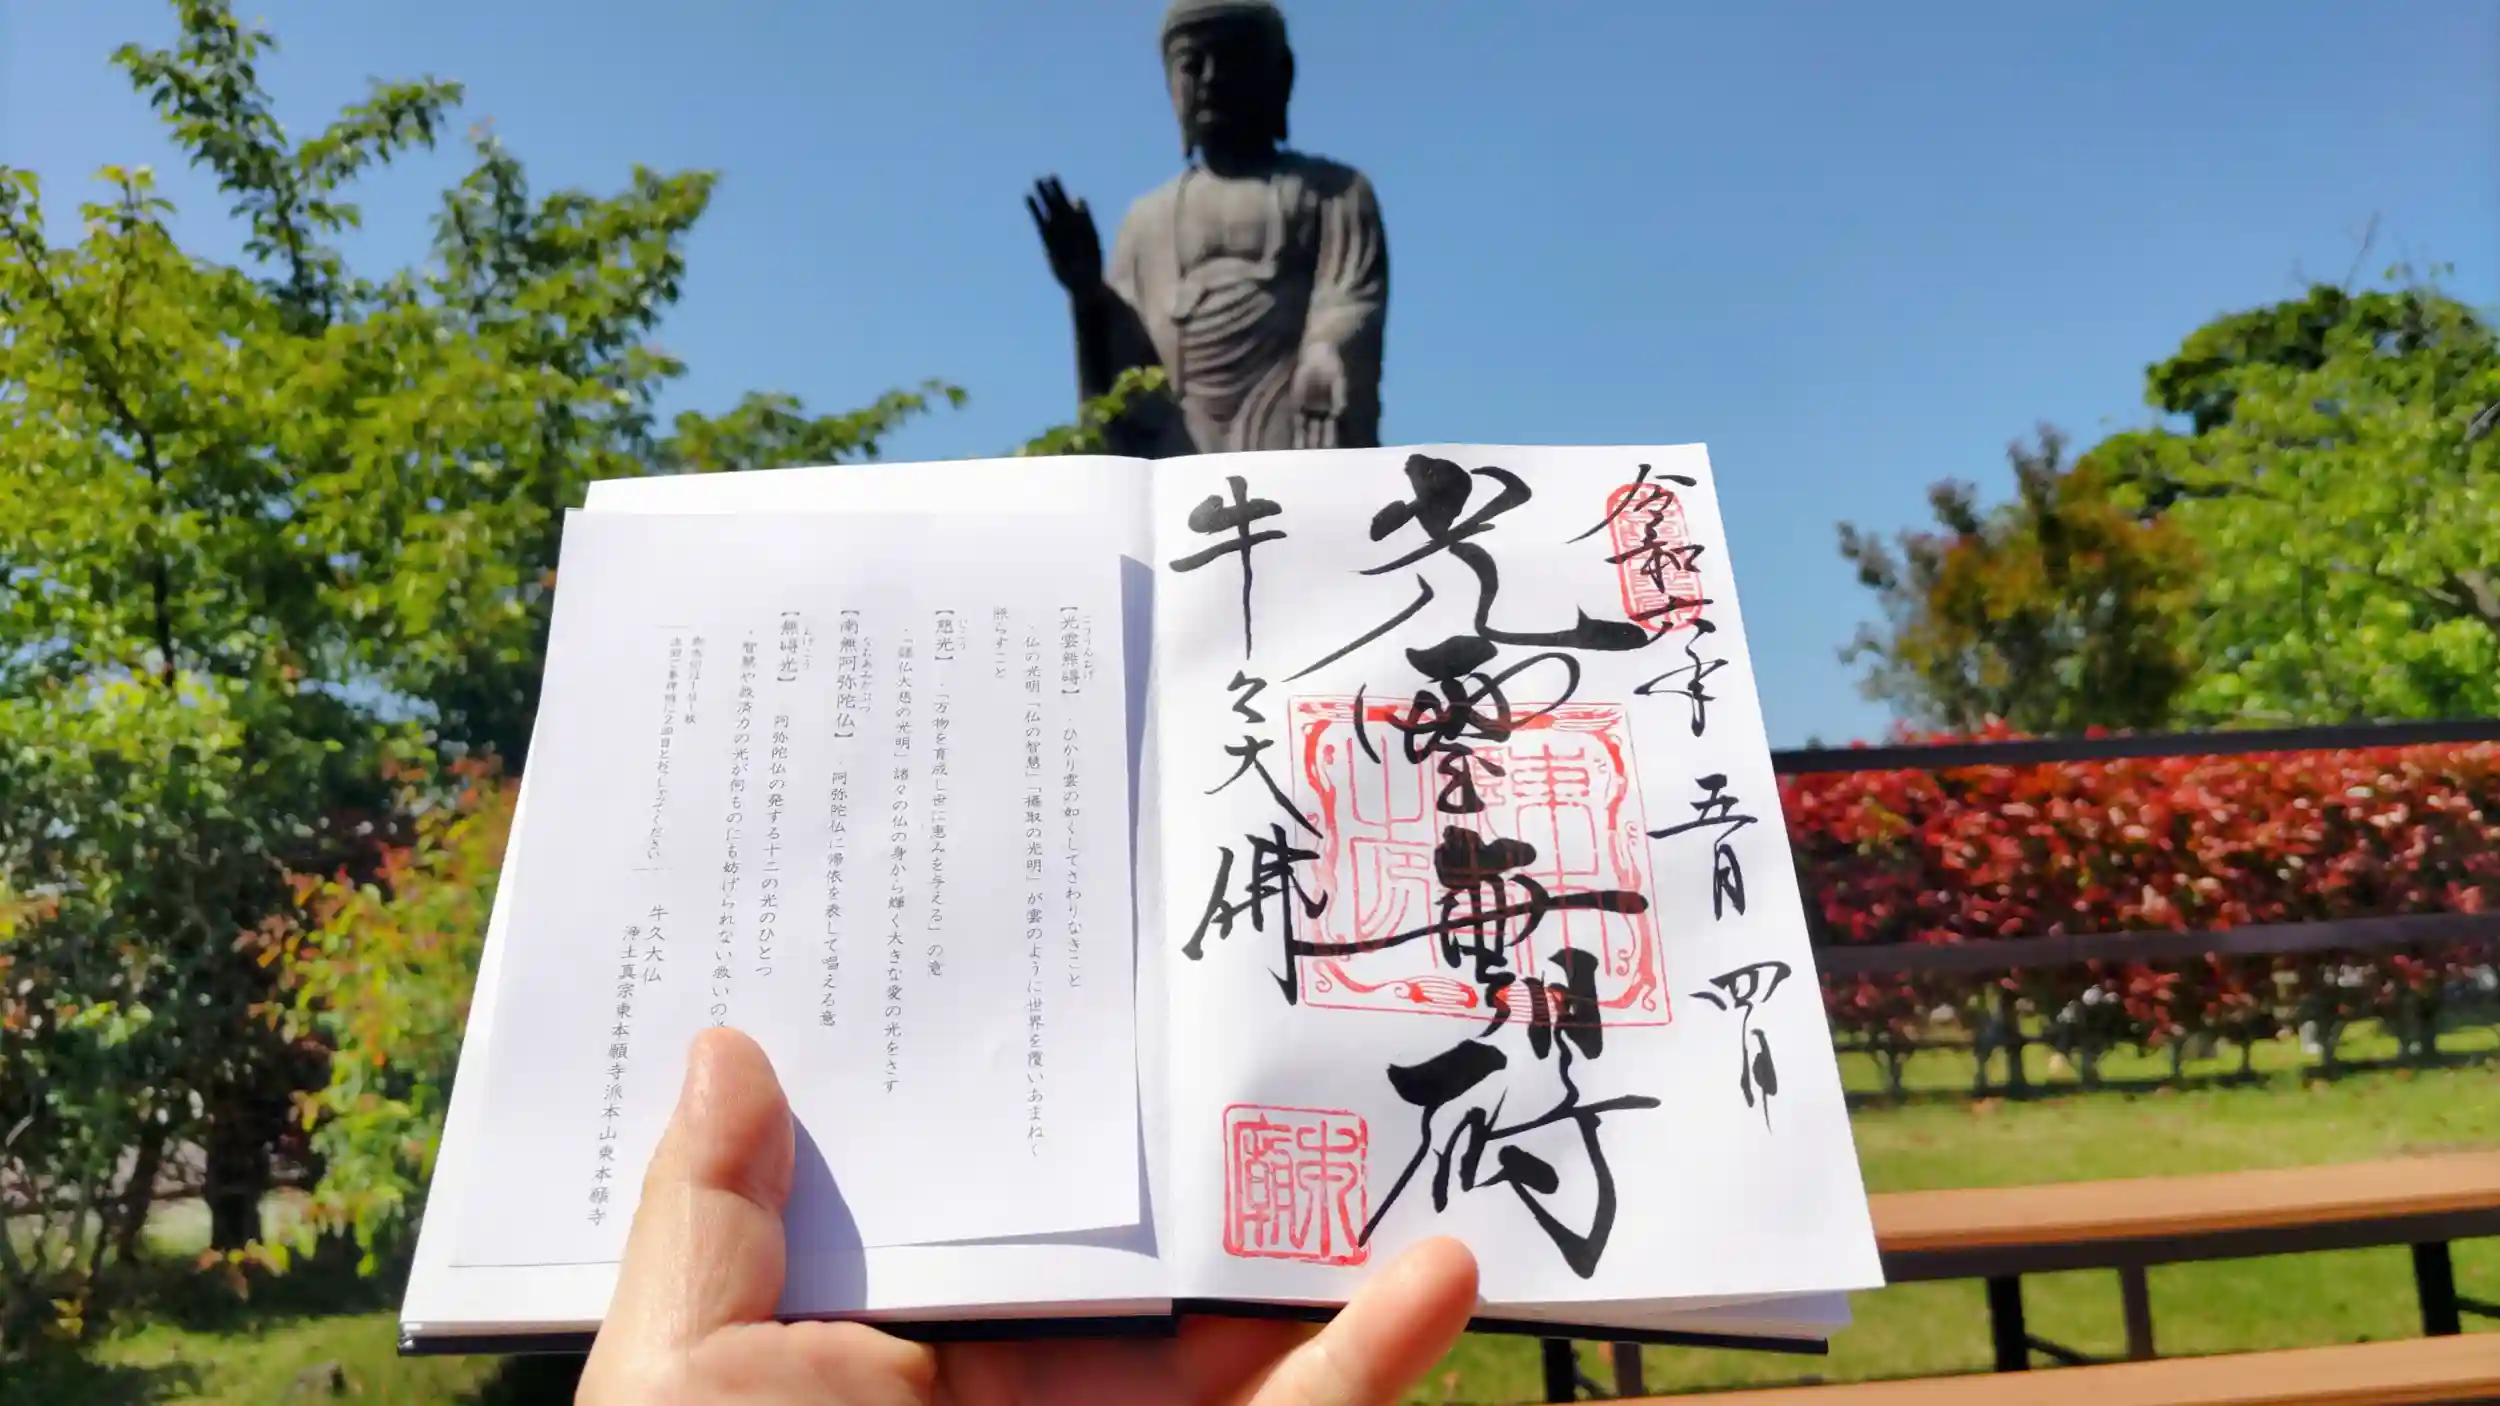 令和六年 五月 四日
光雲無碍
牛久大佛
【光雲無碍】・ひかり雲の如くしてさわりなきこと
・仏の光明「仏の智慧」「摂取の光明」が雲のように世界を覆いあまねく
照らすこと
【慈光】・「万物を育成し世に恵みを与える」の意
・「諸仏大慈の光明」諸々の仏の身から輝く大きな愛の光をさす
【南無阿弥陀仏】・阿弥陀仏に帰依を表して唱える意
【無碍光】 阿弥陀仏の発する十二の光のひとつ
・智慧や救済力の光が何ものにも妨げられない救いの
次回ご参拝時に2回目とおっしゃってください
牛久大仏
浄土真宗東本願寺派本山東本願寺